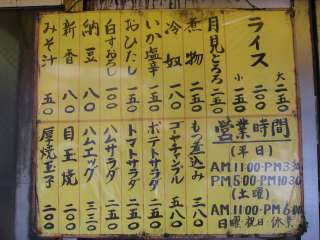 ライス
大 二五〇
小 二〇〇
月見とろろ 二五〇
煮物 二五〇
冷奴 一八〇
いか塩辛 二五〇
おひたし 一五〇
白すおろし
納豆 一〇〇
新香
みそ汁 五〇
営業時間
(平日)
AM11:00-PM3:30
PM5:00-PM10:30
(土曜)
AM11:00-PM6:00
日曜・祝日・休業
もつ煮込み 三八〇
ゴーヤチャンプル 五八〇
ポテトサラダ 二五〇
トマトサラダ 二五〇
ハムサラダ 二五〇
ハムエッグ 三三〇
目玉焼 二〇〇
厚焼玉子 二〇〇